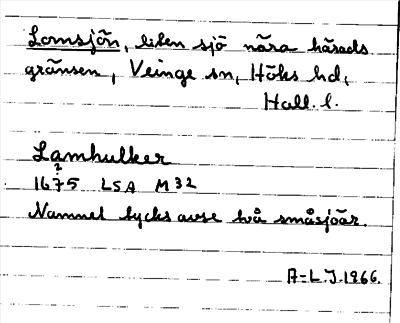 Lomsjön, liten sjö nära härads
gränsen, Veinge sn, Höks hd,
Hall. l.
Lamhulker
?
1675 LSA M32
Namnet tycks avse två småsjöar.
A-L.J. 1966.